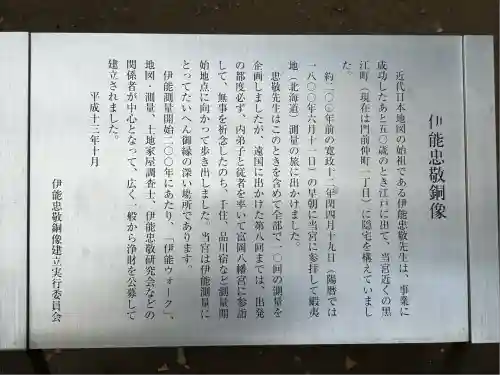 伊能忠敬銅像
近代日本地図の始祖である伊能忠敬先生は、事業に
成功したあと五〇歳のとき江戸に出て、当宮近くの黒
江町（現在は門前仲町一丁目）に隠宅を構えていまし
た。
約二〇〇年前の寛政十二年閏四月十九日（陽暦では
一八〇〇年六月十一日）の早朝に当宮に参拝して蝦夷
地（北海道）測量の旅に出かけました。
忠敬先生はこのときを含めて全部で一〇回の測量を
企画しましたが、遠国に出かけた第八回までは、出発
の都度必ず、内弟子と従者を率いて富岡八幡宮に参詣
して、無事を祈念したのち、千住、品川宿など測量開
始地点に向かって歩き出しました。当宮は伊能測量に
とってたいへん御縁の深い場所であります。
伊能測量開始二〇〇年にあたり、「伊能ウォーク」、
地図・測量、土地家屋調査士、伊能忠敬研究会などの
関係者が中心となって、広く一般から浄財を公募して
建立されました。
平成十三年十月
伊能忠敬銅像建立実行委員会